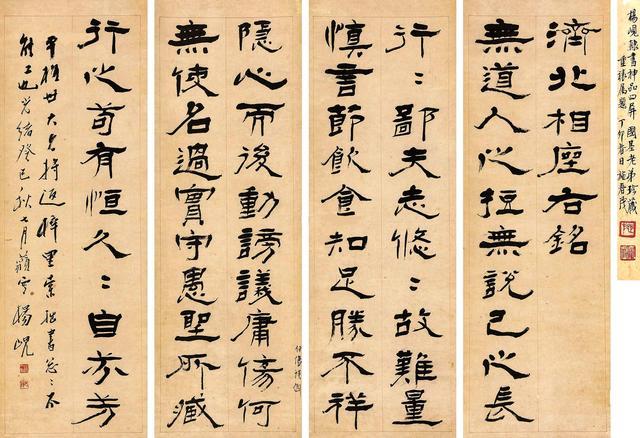 楊峴隸書神品四屏 國星老弟珍藏
屬題 丁卯春日
濟北相座右銘
無道人之短無說己之長
行〻鄙夫志悠〻故難量
慎言節飲食知足勝不祥
隱心而後動謗議庸傷何
無使名過實守愚聖所藏
行之苟有恒久〻自芬芳
世大兄將返梓里索拙書怱〻不
能工也光緒癸巳秋七月藐翁楊峴